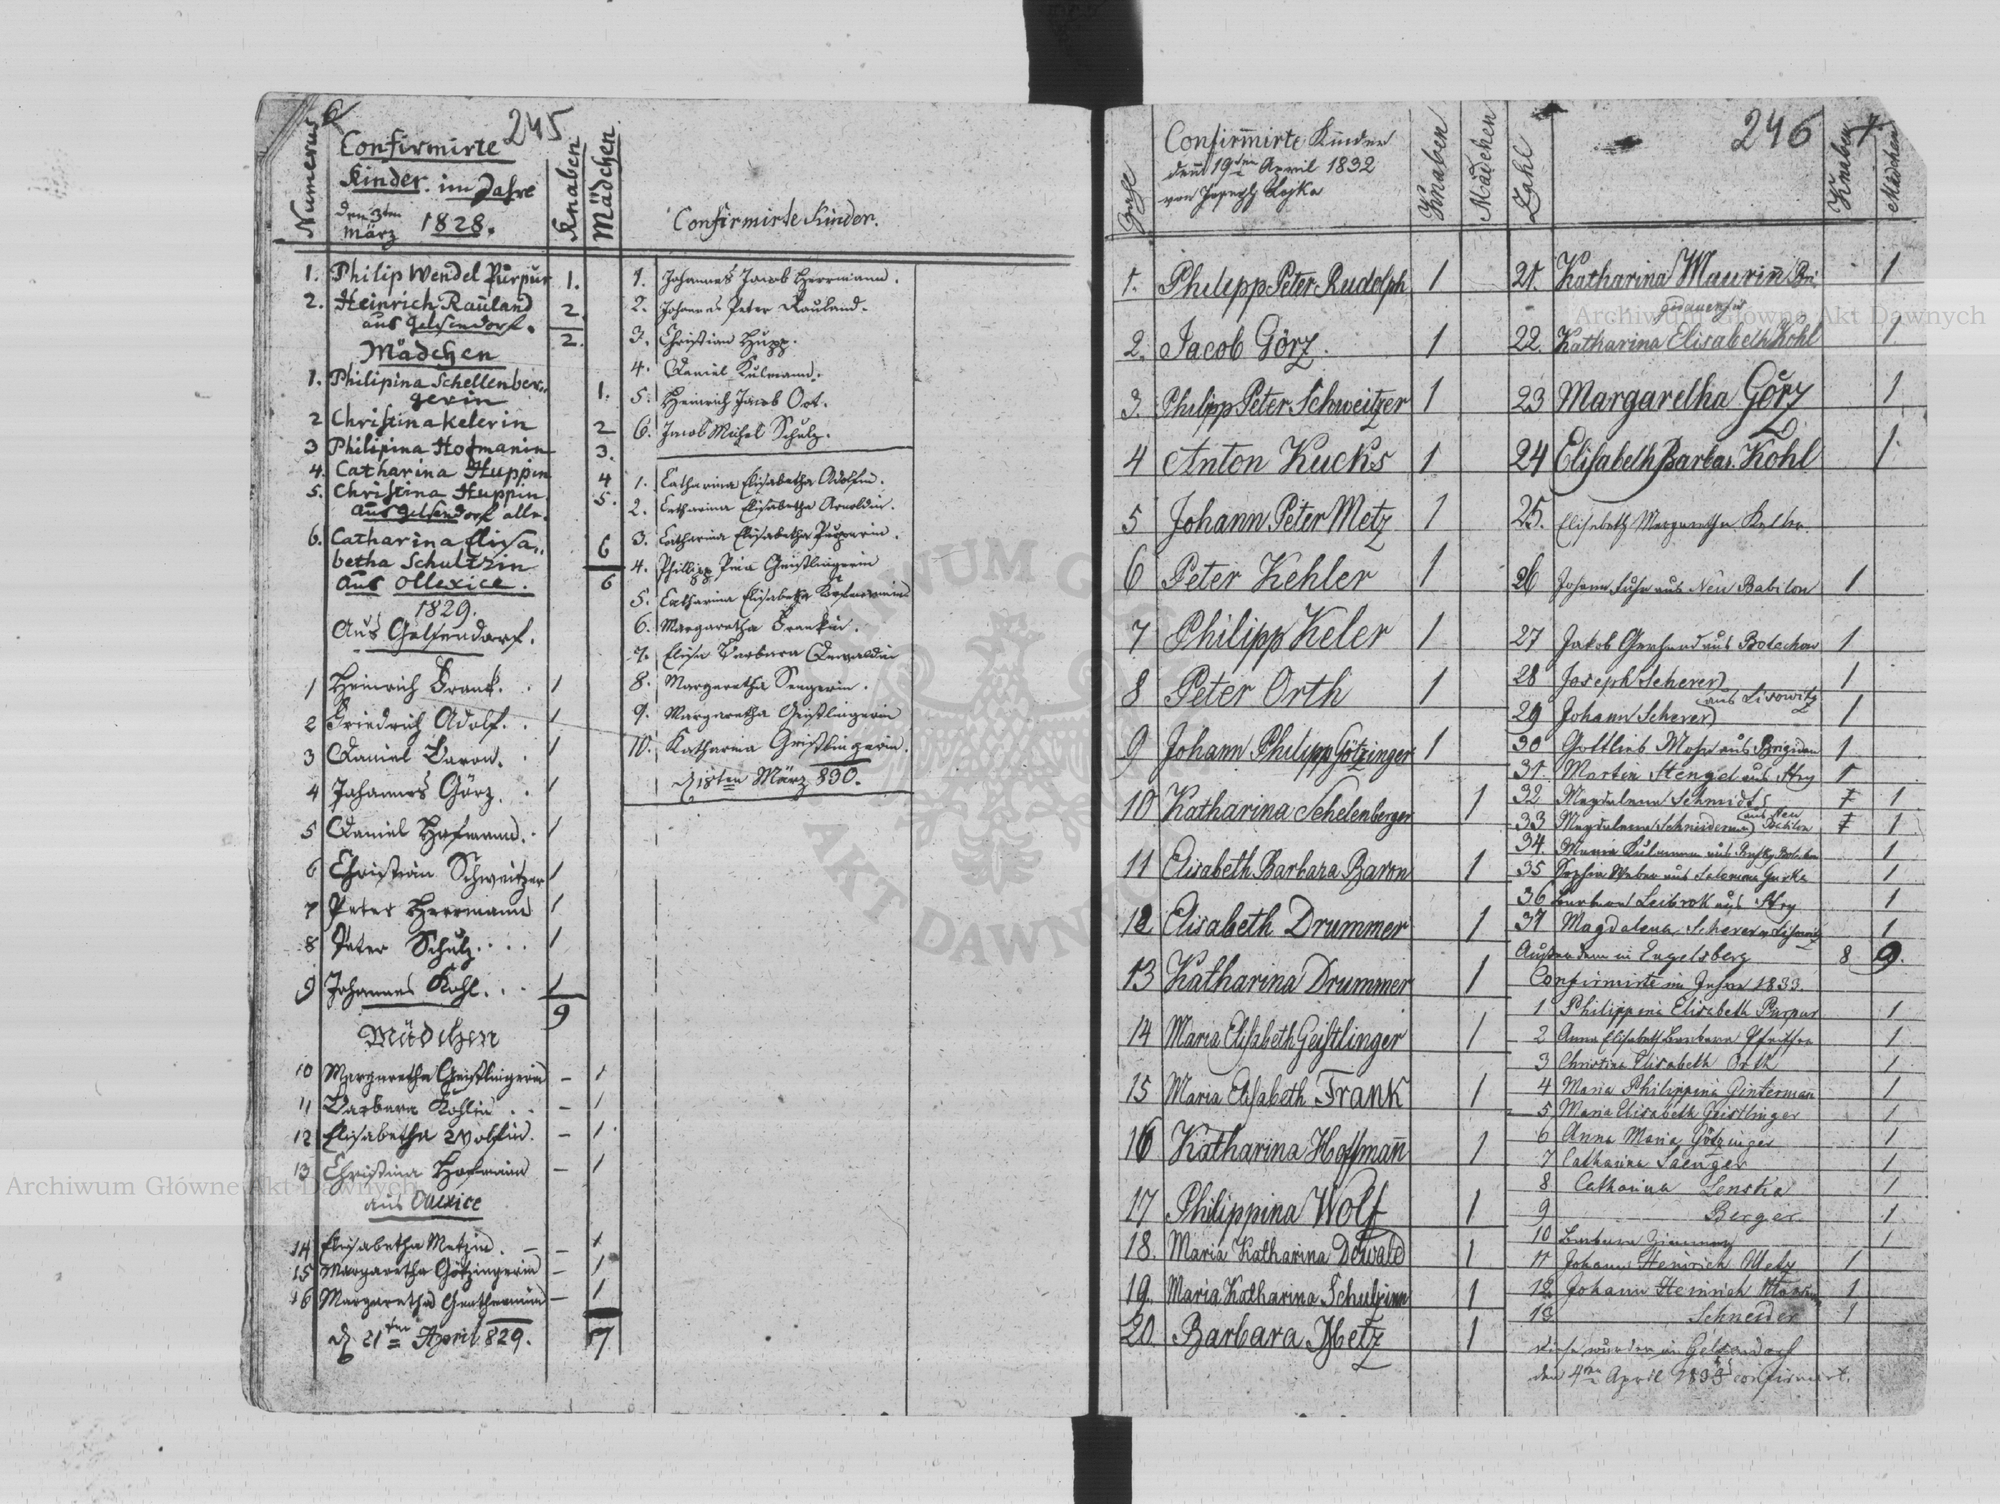 6
245
Numerus
Confirmirte
Kinder im Jahre
den 3ten
März 1828.
Knaben
Mädchen
1. Philip Wendel Purpur 1.
2. Heinrich Rauland 2
aus Gelsendorf. 2.
Mädchen
1. Philipina Schellenber„ 1.
gerin
2 Christina Kelerin 2
3 Philipina Hofmanin 3.
4. Catharina Huppin 4
5. Christina Huppin 5.
aus Gelsendorf alle.
6. Catharina Elisa„ 6
betha Schultzin 6
aus Ollexice.
1829.
Aus Gelsendorf.
1 Heinrich Frank. 1
2 Friedrich Adolf. 1
3 Daniel Baron. 1
4 Johannes Görz. 1
5 Daniel Hofmann. 1
6 Christian Schweitzer 1
7 Peter Herrmann 1
8 Peter Schulz. 1
9 Johannes Kohl. 1
9
Mädchen
10 Margaretha Geistlingerin – 1
11 Barbara Kohlin – 1
12 Elisabetha Wolfin. – 1
13 Christina Hofmanin – 1
aus Ollexice
14 Elisabetha Metzin. – 1
15 Margaretha Götzingerin – 1
16 Margaretha – 1
d 21ten April 829. 7
Confirmirte Kinder.
1. Johannes Jacob Herrmann.
2. Johannes Peter Rauland.
3. Christian Hupp.
4. Daniel Kulmann.
5. Heinrich Jacob Ort.
6. Jacob Michel Schulz.
1. Catharina Elisabetha Adolfin.
2. Catharina Elisabetha Arnoldin.
3. Catharina Elisabetha Purperin.
4. Philipp Pina Geistlingerin
5. Catharina Elisabetha Hofmanin
6. Margaretha Frankin.
7. Elisa Barbara Dewaldin
8. Margaretha Sengerin.
9. Margaretha Geistlingerin
10. Katharina Geistlingerin.
d 18ten März 830.
Confirmirte Kinder
den 19ten April 1832
von Joseph
Knaben
Mädchen
1. Philipp Peter Rudolph 1
2. Jacob Görz. 1
3. Philipp Peter Schweitzer 1
4 Anton Kucks 1
5 Johann Peter Metz 1
6 Peter Kehler 1
7 Philipp Keler 1
8 Peter Orth 1
9 Johann Philipp Götzinger 1
10 Katharina Schelenberger 1
11 Elisabeth Barbara Baron 1
12 Elisabeth Drummer 1
13 Katharina Drummer 1
14 Maria Elisabeth Geistlinger 1
15 Maria Elisabeth Frank 1
16 Katharina Hoffmañ 1
17 Philippina Wolf 1
18. Maria Katharina Dewald 1
19. Maria Katharina Schulzinn 1
20. Barbara Metz 1
Zahl
246
Knaben
Mädchen
21. Katharina Maurin 1
22. Katharina Elisabeth Kohl 1
23 Margaretha Görz 1
24 Elisabeth Barbar. Kohl 1
25. Elisabeth Margaretha Keller
26 Johann Fuhr aus Neu Babilon 1
27 Jakob Gerhard aus Bolechow 1
28 Joseph Scherer 1
aus Lisowitz
29 Johann Scherer 1
30 Gottlieb Mohr aus Brigidau 1
31. Martin Stengel aus Stry 1
32 Magdalena Schmidt 1
33 Magdalena Schneider aus Neu Babilon 1
34. Maria Kulmann aus 1
35 Sophia Weber aus 1
36 Barbara Leibrok aus Stry 1
37 Magdalena Scherer 1
Außerdem in Engelsberg 8 9.
Confirmirte im Jahre 1833.
1 Philippina Elisabeth Purpur 1
2 Anna Elisabeth Barbara 1
3 Christina Elisabeth Orth 1
4 Maria Philippina Ginterman 1
5 Maria Elisabeth Geistlinger 1
6 Anna Maria Götzinger 1
7 Catharina Saenger 1
8 Catharina 1
9 Berger 1
10 Barbara 1
11 Johann Heinrich Metz 1
12 Johann Heinrich 1
13 Schneider 1
diese wurden in Gelsendorf
den 4ten April 1833 confirmirt.
Archiwum Główne Akt Dawnych
Archiwum Główne Akt Dawnych
ARCHIWUM GŁÓWNE AKT DAWNYCH